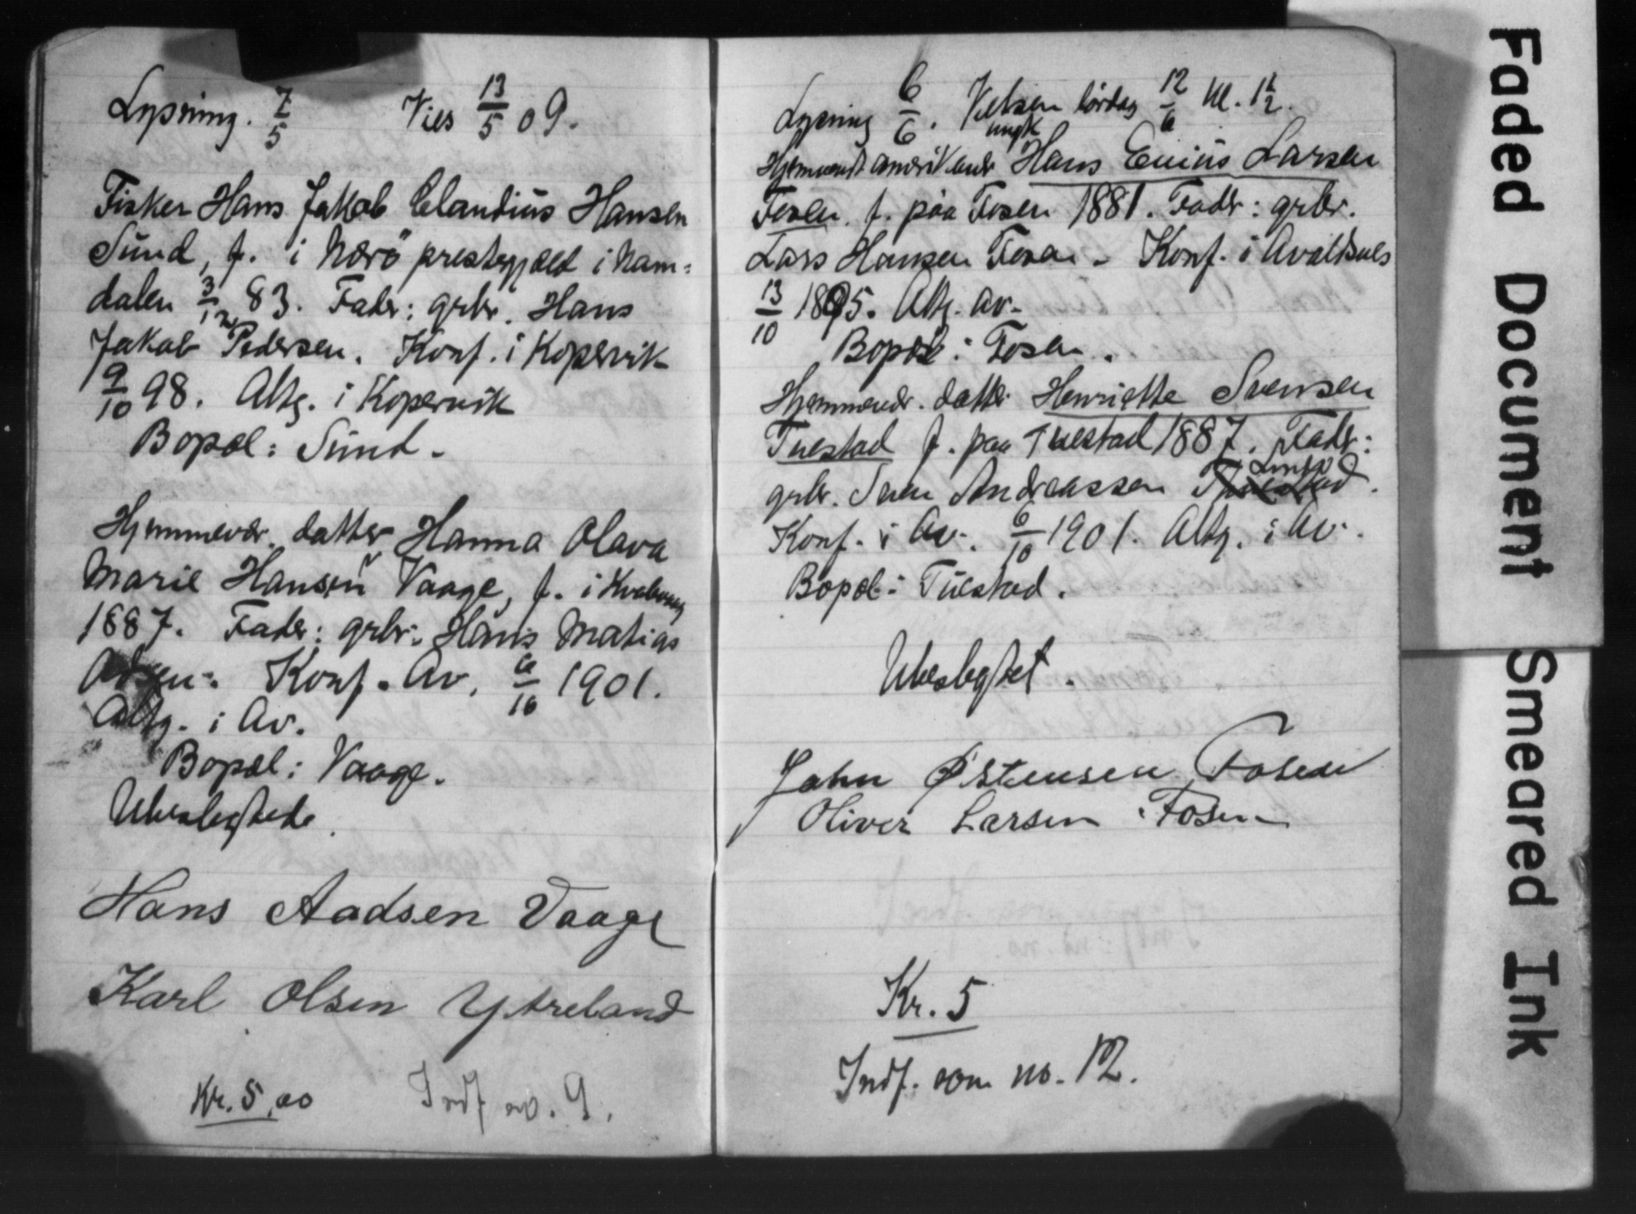 Lysning. 7/5 Vies 13/5 09.
Fisker Hans Jakob Claudius Hansen
Sund, f. i Nærö prestegjæld i Nam=
dalen 3/12 83. Fader: grbr. Hans
Jakob Pedersen. Konf. i Kopervik
9/10 98. Altg. i Kopervik
Bopæl: Sund.
Hjemmevær. datter Hanna Olava
Marie Hansen Vaage, f. i
1887. Fader: grbr. Hans Matias
Adsen. Konf. Av. 6/10 1901.
Altg. i Av.
Bopæl: Vaage.
Ubeslegtede.
Hans Aadsen Vaage
Karl Olsen Ytreland
Kr. 5,00 Indf no. 9.
Lysning 6/6. Vielsen lørdag 12/6 kl. 1 1/2.
ungk
Hjemvendt amerikaner Hans Enius Larsen
Fosen. f. paa Fosen 1881. Fader: grbr.
Lars Hansen Fosen. Konf. i Avaldsnes
13/10 1895. Altg. Av.
Bopæl: Fosen.
Hjemmevær. datter Henriette Svensen
Tuestad f. paa Tuestad 1887. Fader:
grbr. Sven Andreassen Tuestad.
Konf. i Av. 6/10 1901. Altg. i Av.
Bopæl: Tuestad.
Ubeslegtet.
John Østensen Fosen
Oliver Larsen Fosen
Kr. 5
Indf. som no. 12.
Faded Document
Smeared Ink